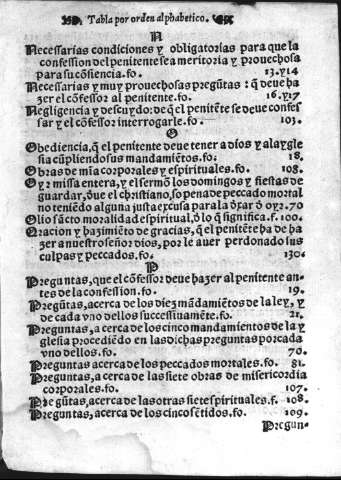 Tabla por orden alphabetico.
N
Necessarias condiciones y obligatorias para que la
confession del penitente sea meritoria y prouechosa
para su cõsiencia. fo. 13. y 14
Necessarias y muy prouechosas pregũtas: q̃ deue ha
zer el cõfessor al penitente. fo. 16. y 17
Negligencia y descuydo: de q̃ el penitẽte se deue confes
sar y el cõfessor interrogarle. fo. 103.
O
Obediencia, q̃ el penitente deue tener a dios y ala ygle
sia cũpliendo sus mandamiẽtos. fo: 18.
Obras de mĩa corporales y espirituales. fo. 108.
Oyr missa entera, y el sermõ los domingos y fiestas de
guardar, õue el christiano, so pena de peccado mortal
no teniẽdo alguna justa excusa para la õxar õ oyr. 70
Olio sãcto moralidad espiritual, õ lo q̃ significa. f. 100.
Oracion y hazimiẽto de gracias, que el penitẽte ha de ha
zer a nuestro señor dios, por le auer perdonado sus
culpas y peccados. 130.
P
Preguntas, que el cõfessor deue hazer al penitente an-
tes de la confession. fo. 19.
Pregũtas, acerca de los diez mãdamiẽtos de la ley, y
de cada vno dellos successiuamẽte. fo. 21.
Preguntas, a cerca de los cinco mandamientos de la y
glesia procediẽdo en las dichas preguntas por cada
vno dellos. fo. 70.
Preguntas acerca de los peccados mortales. fo. 81.
Preguntas, a cerca de las siete obras de misericordia
corporales. fo. 107.
Pregũtas, acerca de las otras siete spirituales. f. 108.
Preguntas, acerca de los cinco sẽtidos. fo. 109.
Pregun-